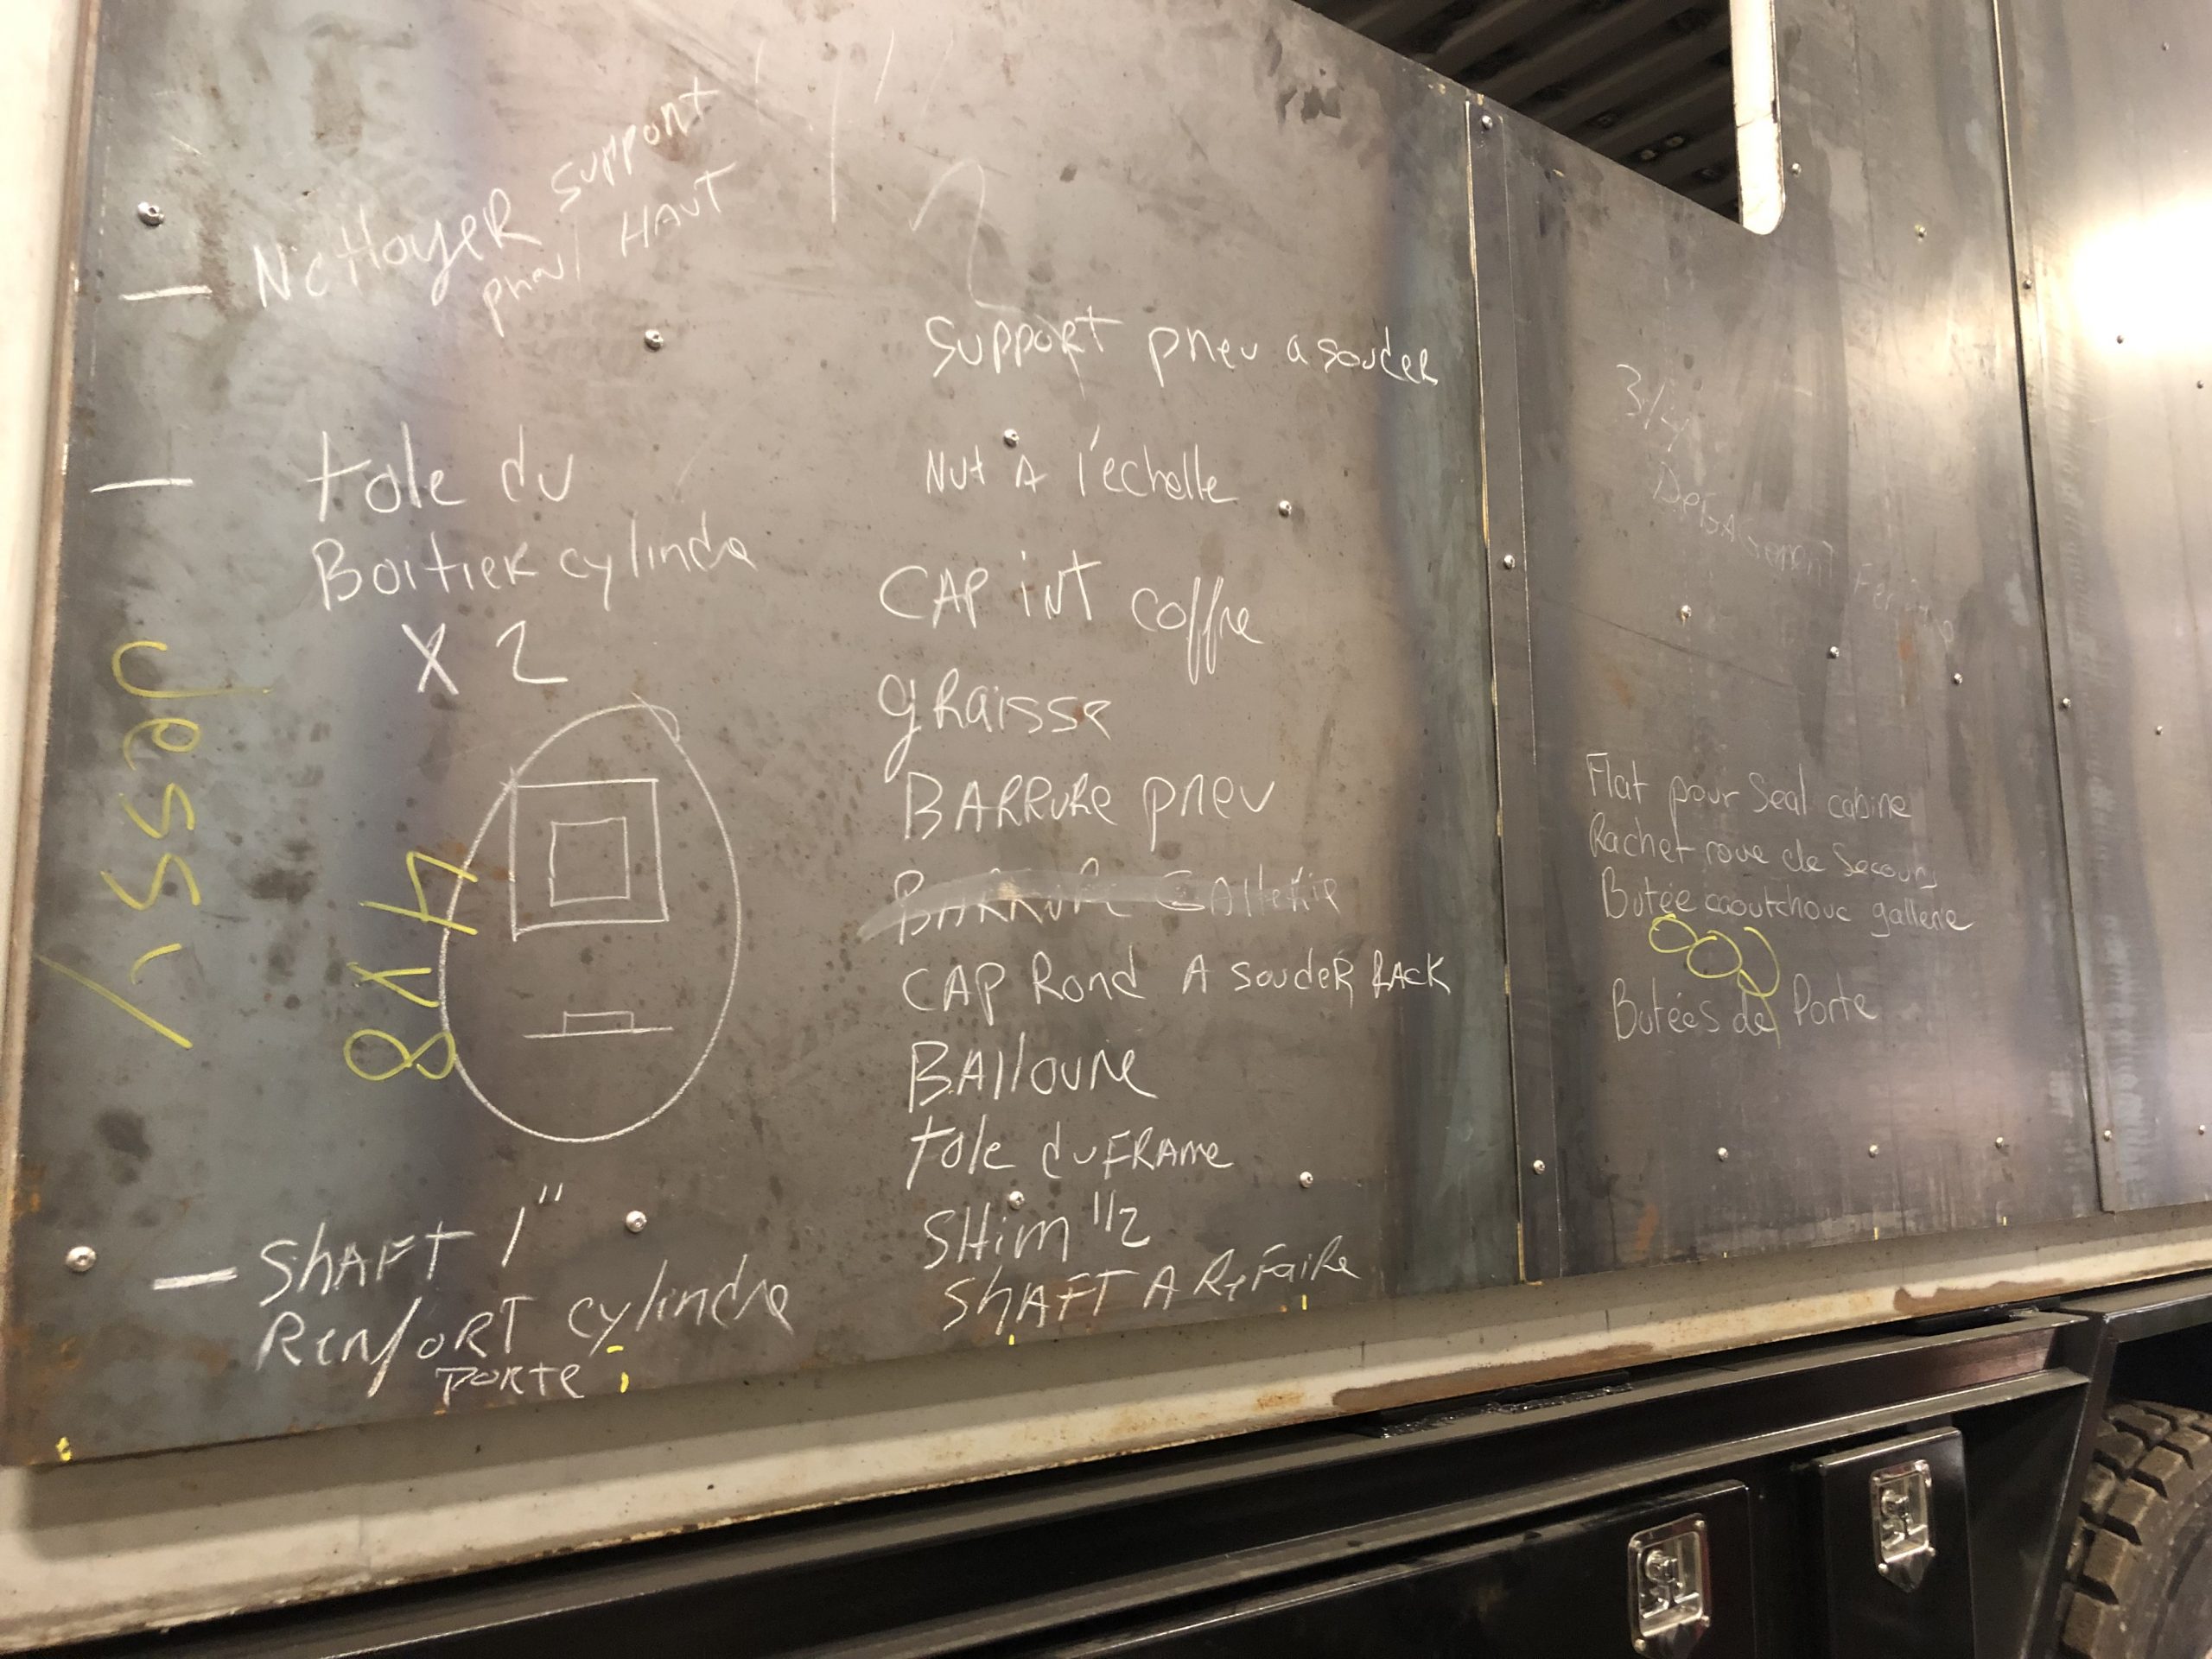 NettoyeR support
pneu HAUT
tole du
Boitier cylindre
X 2
Jessy
4X8
ShAFT 1"
RenfoRT cylindre
PORTE
SuppoRt pneu a soudeR
Nut A l'echelle
CAP iNT coffre
gRaisse
BARRuRe pneu
BARRuRe GAlleRie
CAP Rond A soudeR RACK
BAlloune
tole du FRAme
SHim 1/2
ShAFT A ReFaiRe
3/4
DeGAGement
Flat pour Seal cabine
Rachet roue de Secours
Butée caoutchouc gallerie
Butées de Porte